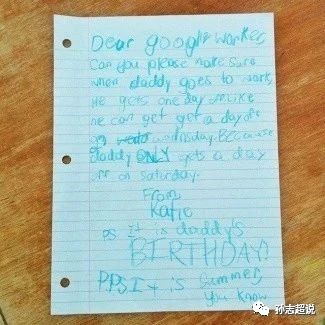 Dear google worker,
Can you please make sure
when daddy goes to work,
He gets one day off like
he can get get a day off
on wednsday. Because
daddy ONLY gets a day
off on saturday.
From
Katie
PS it is daddy's
BIRTHDAY!
PPS It is summer,
you know
孙志超说